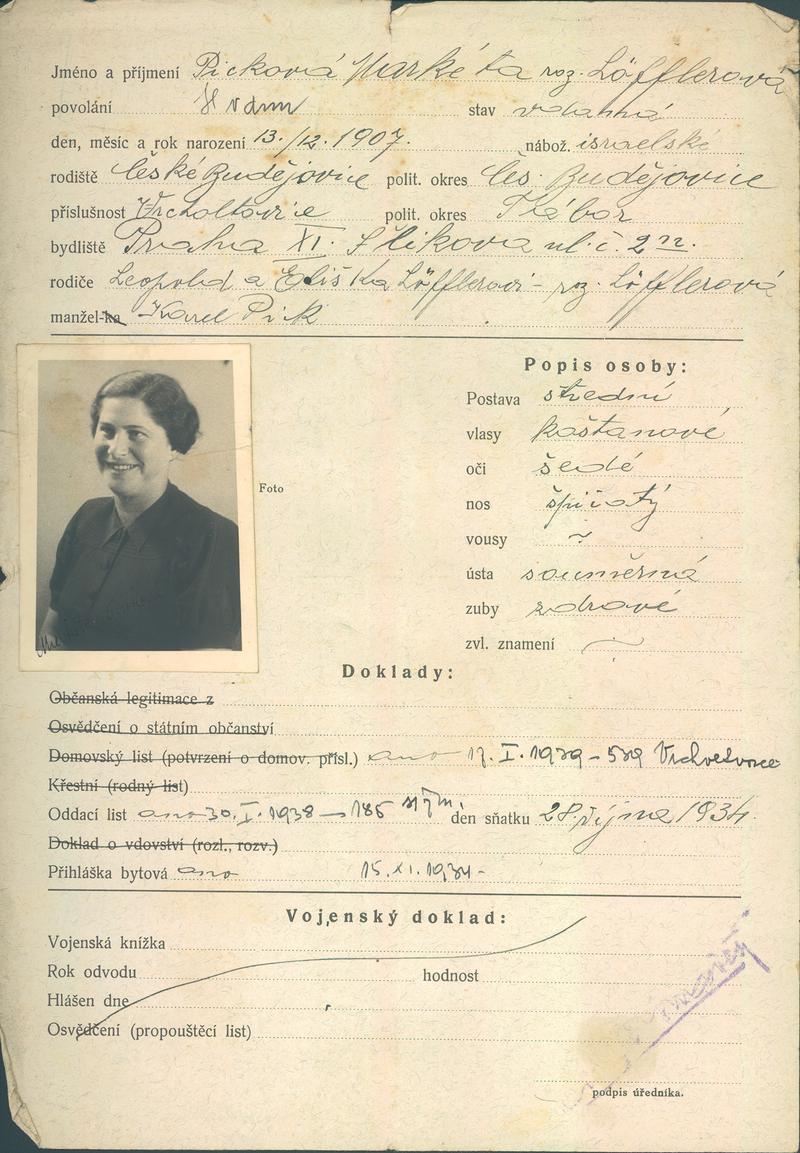 Jméno a příjmení Picková Markéta roz. Löfflerová
povolání V dom stav vdaná
den, měsíc a rok narození 13./12. 1907. nábož. israelské
rodiště České Budějovice polit. okres Čes. Budějovice
příslušnost Vrcholtovice polit. okres Tábor
bydliště Praha XI. Šlikova ul. č. 2
rodiče Leopold a Eliška Löfflerovi - roz. Löfflerová
manžel-ka Karel Pick
Popis osoby:
Postava střední
vlasy kaštanové
oči šedé
Foto
nos špičatý
vousy ~
ústa souměrná
zuby zdravé
zvl. znamení ~
Doklady:
Občanská legitimace z
Osvědčení o státním občanství
Domovský list (potvrzení o domov. přísl.) ano 17. I. 1939 - 539
Křestní (rodný list)
Oddací list ano 30. I. 1938 - 185 den sňatku 28. října 1934.
Doklad o vdovství (rozl., rozv.)
Přihláška bytová ano 15. XI. 1934 -
Vojenský doklad:
Vojenská knížka
Rok odvodu hodnost
Hlášen dne
Osvědčení (propouštěcí list)
podpis úředníka.